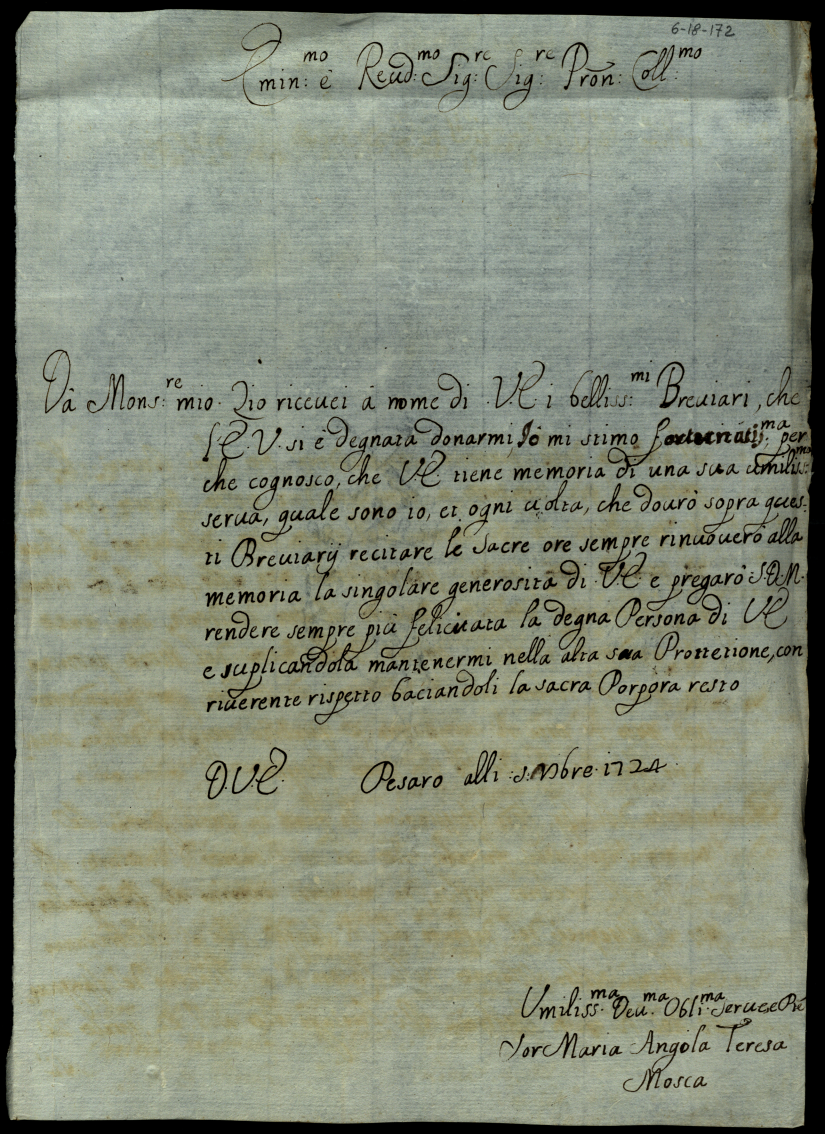 6-18-172
Emin:mo è Reud:mo Sig:re Sig:re Pron: Coll:mo
Dà Mons:re mio Zio riceuei à nome di V.E. i belliss:mi Breuiari, che
l'E.V. si è degnata donarmi, Io mi stimo fortunatis:ma per
che cognosco, che V.E. tiene memoria di una sua umilis:ma
serua, quale sono io, et ogni uolta, che dourò sopra ques-
ti Breuiarij recitare le sacre ore sempre rinuouerò alla
memoria la singolare generosità di V.E. e pregarò S.D.M.
rendere sempre più felicitata la degna Persona di V.E.
e suplicandola mantenermi nella alta sua Prottetione, con
riuerente rispetto baciandoli la sacra Porpora resto
D.V.E. Pesaro alli :5: Nbre 1724
Umiliss:ma Deu:ma Obli:ma Serua e
Sor Maria Angola Teresa
Mosca